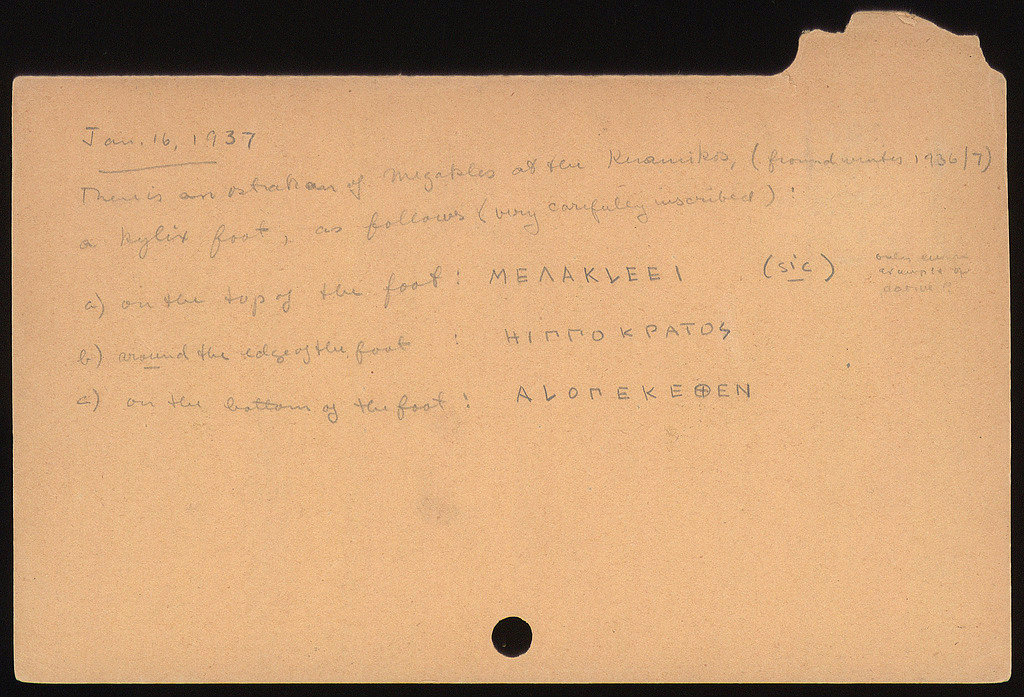 Jan. 16, 1937
There is an ostrakon of Megakles at the Kerameikos, (found winter 1936/7)
a kylix foot, as follows (very carefully inscribed) :
a) on the top of the foot : ΜΕΛΑΚLΕΕΙ (sic) only
example of
dative
b) around the edge of the foot : ΗΙΠΠΟΚΡΑΤΟS
c) on the bottom of the foot : ΑLΟΠΕΚΕ⊕ΕΝ